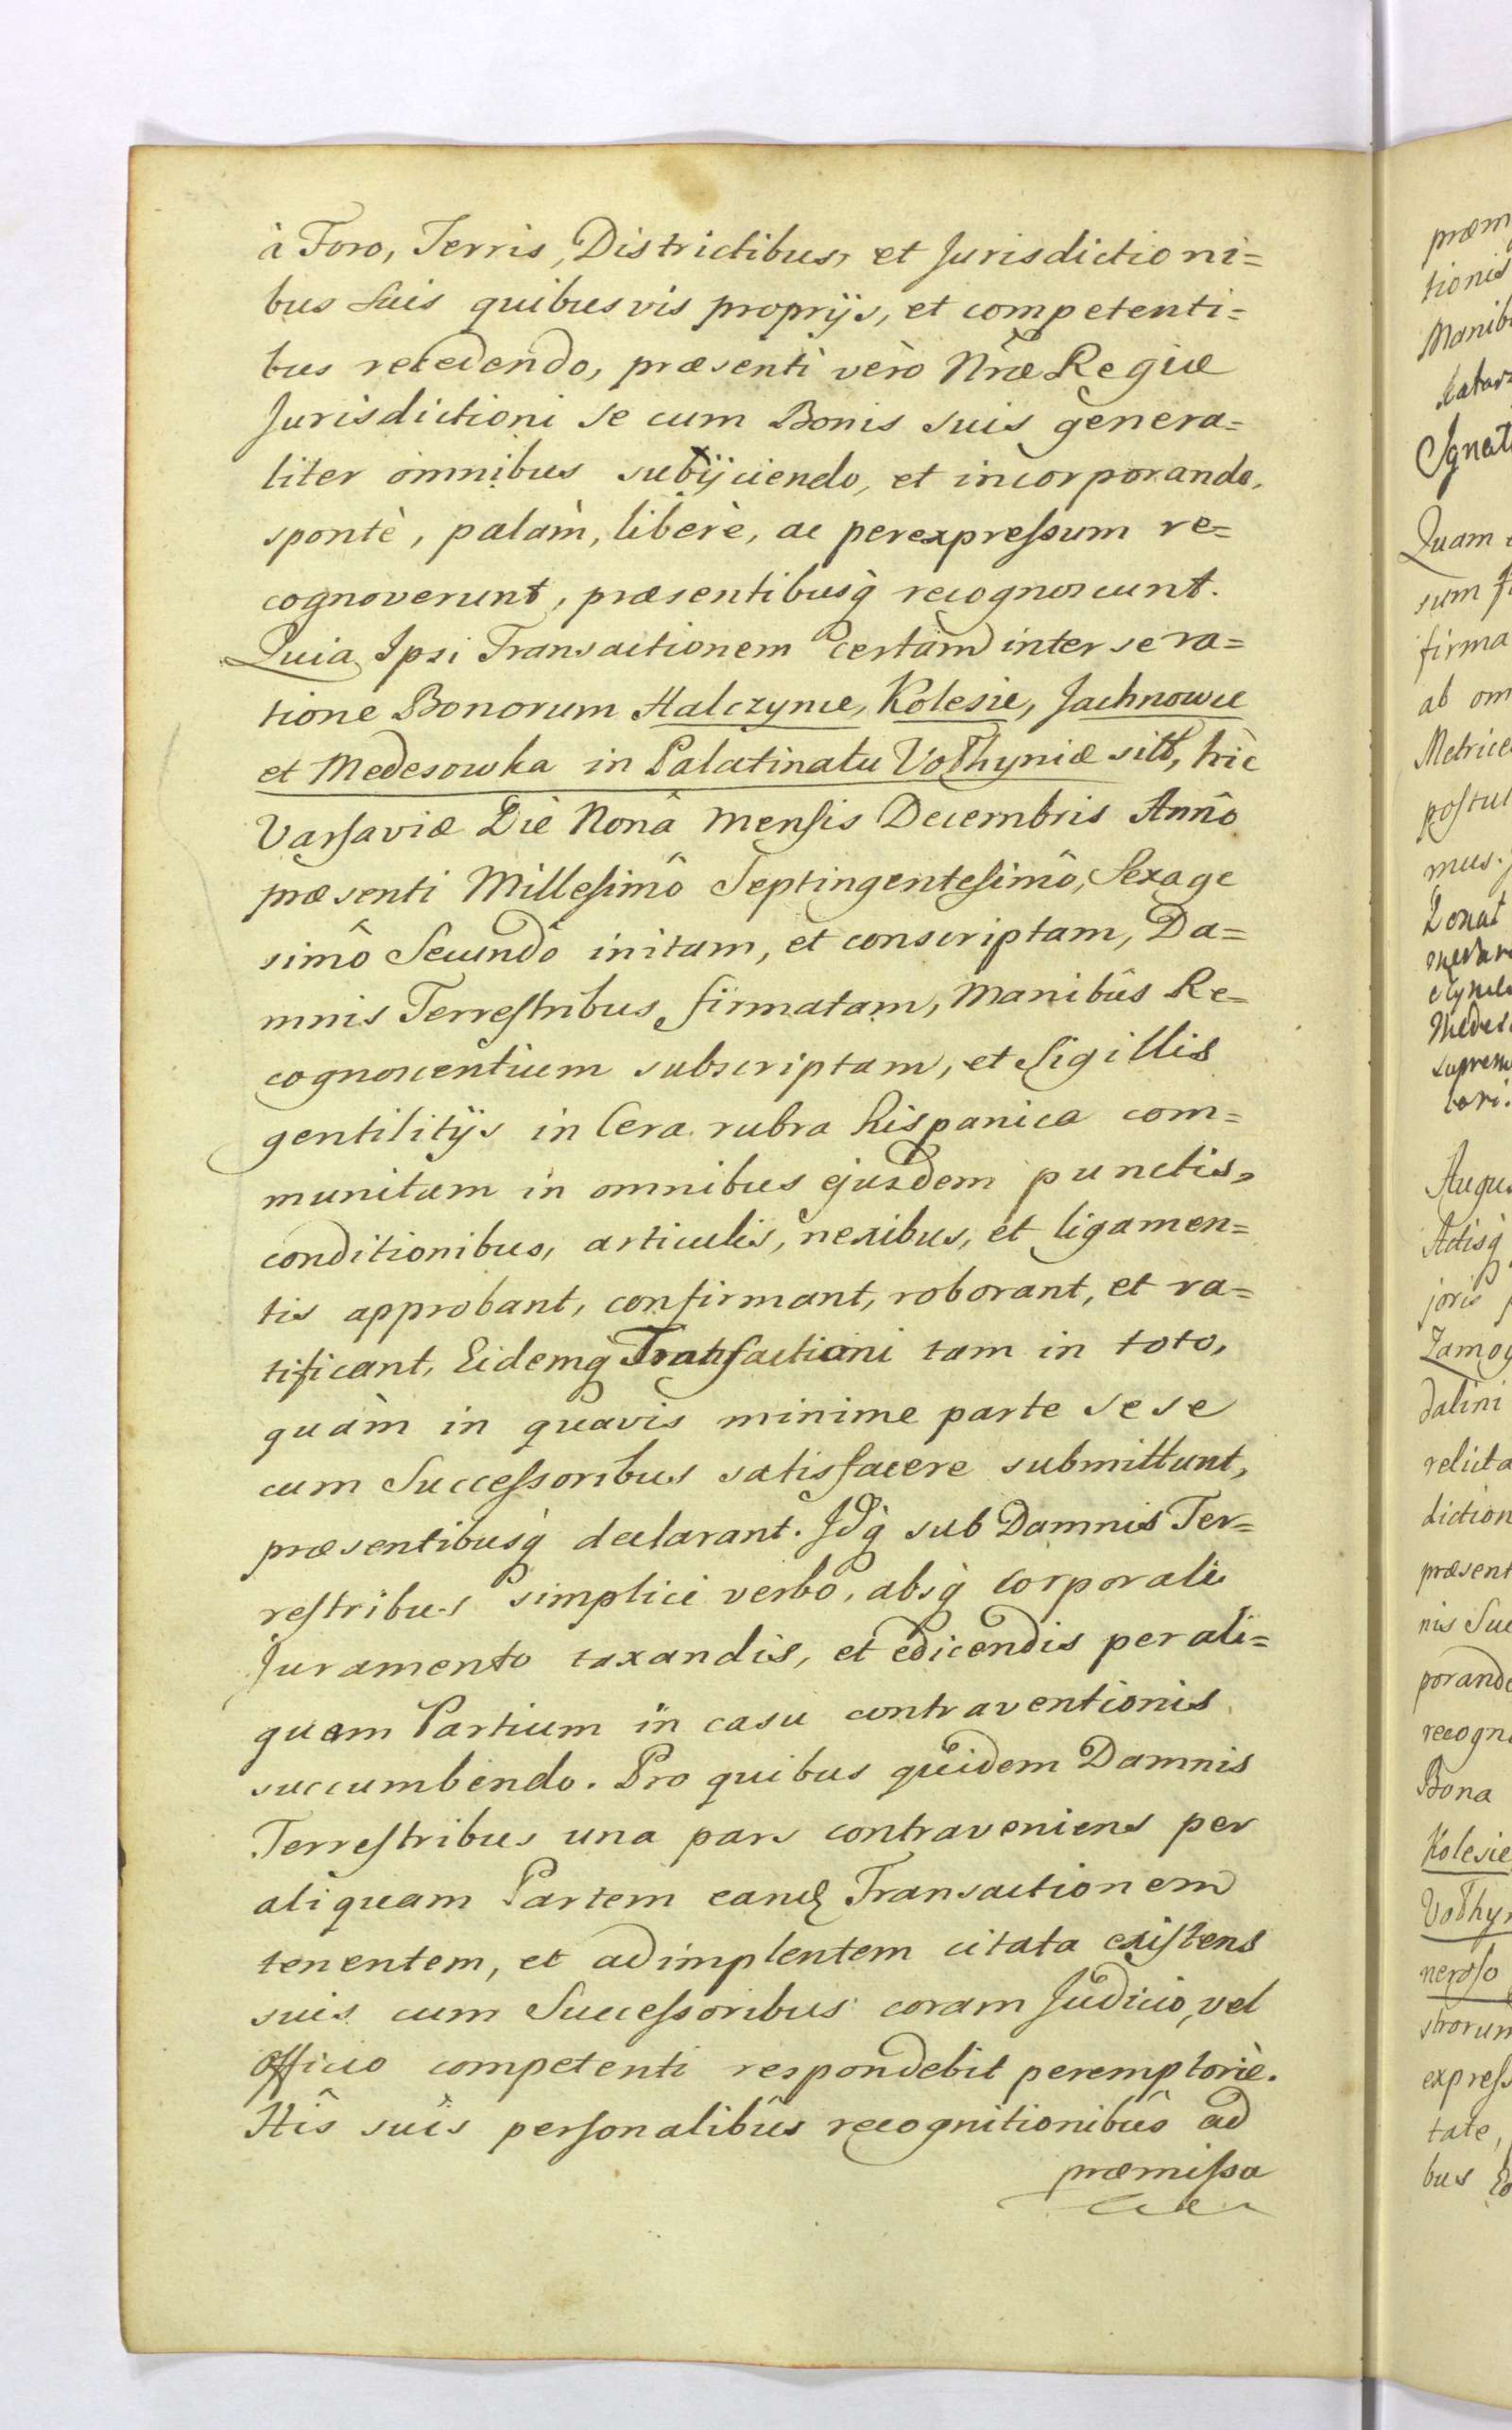 à Foro, Terris, Districtibus, et Jurisdictioni=
bus Suis quibusvis proprijs, et competenti=
bus recedendo, præsenti verò Nræ Regiæ
Jurisdictioni se cum Bonis suis genera=
liter omnibus subijciendo, et incorporando,
spontè, palàm, liberè, ac perexpreſsum re=
cognoverunt, præsentibusq̀ recognoscunt.
Quia Ipsi Transactionem certam inter se ra=
tione Bonorum Halczynce, Kolesie, Jachnowce
et Medesowka in Palatinatu Volhyniæ sitt, hìc
Varſaviæ Diè Nonâ Mensis Decembris Annô
præsenti Milleſimô Septingenteſimô, Sexage
simô Secundô initam, et conscriptam, Da=
mnis Terreſtribus firmatam, Manibûs Re=
cognoscentium subscriptam, et Sigillis
gentilitijs in Cera rubra hispanica com=
munitam in omnibus ejusdem punctis,
conditionibus, articulis, nexibus, et ligamen=
tis approbant, confirmant, roborant, et ra=
tificant, Eidemq̀ Transſactioni tam in toto,
quàm in quavis minime parte sese
cum Succeſsoribus satisfacere submittunt,
præsentibusq̀ declarant. Jdq̀ sub Damnis Ter=
reſtribus simplici verbo, absq̀ corporali
Juramento taxandis, et edicendis per ali=
quam Partium in casu contraventionis
succumbendo. Pro quibus quidem Damnis
Terreſtribus una pars contraveniens per
aliquam Partem eand Transactionem
tenentem, et adimplentem citata exiſtens
suis cum Succeſsoribus coram Judicio, vel
Officio competenti respondebit peremptoriè.
Hîs suis perſonalibûs recognitionibûs ad
præmiſsa
præm
tionis
Manib
Ignat
Quam
sum
firma
ab om
Metrice
poſtul
mus.
Donat
Medes
supren
Augu
Actisq̀
joris
Zamoy
dalini
relicta
diction
præsent
nis Suc
porand
recogn
Bona
Kolesie
Volhyn
neroſo
strorum
expreſs
tate,
bus